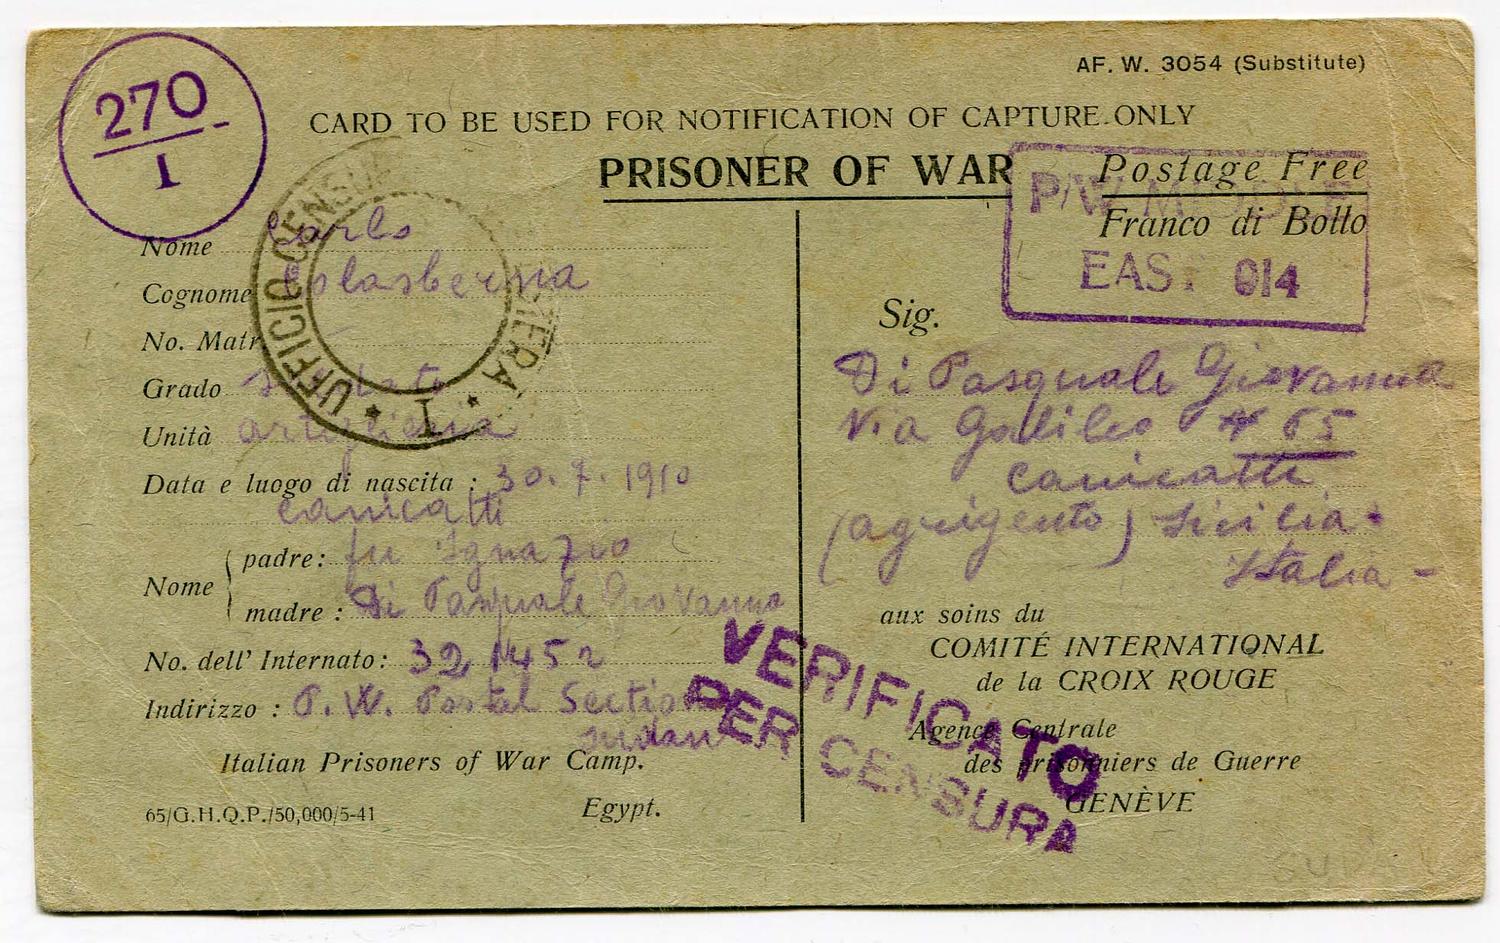 AF. W. 3054 (Substitute)
270
I
CARD TO BE USED FOR NOTIFICATION OF CAPTURE ONLY
PRISONER OF WAR
Postage Free
Franco di Bollo
P/W MIDDLE
EAST 014
UFFICIO CENSURA
I
Nome Carlo
Cognome
No. Matr.
Grado soldato
Unità artiglieria
Data e luogo di nascita : 30. 7. 1910
canicatti
Nome
padre: fu Ignazio
madre : Di Pasquale Giovanna
No. dell' Internato:
Indirizzo : P. W. Postal Section
Sudan
Italian Prisoners of War Camp.
Egypt.
65/G.H.Q.P./50,000/5-41
Sig.
Di Pasquale Giovanna
Via Galileo 65
canicatti
(agrigento) Sicilia
Italia -
aux soins du
COMITÉ INTERNATIONAL
de la CROIX ROUGE
Agence Centrale
des prisonniers de Guerre
GENÈVE
VERIFICATO
PER CENSURA